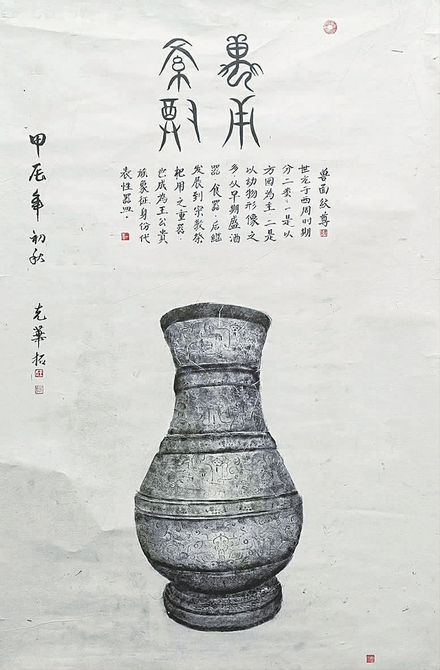 獸面紋尊
于西周时期
分二类.一是以
方圆為主.二是
以动物形像之
多从早期盛酒
器.食器.后
发展到宗教祭
祀用之重器.
也成為王公貴
族象征身份代
表性器皿.
甲辰年初秋 克華拓